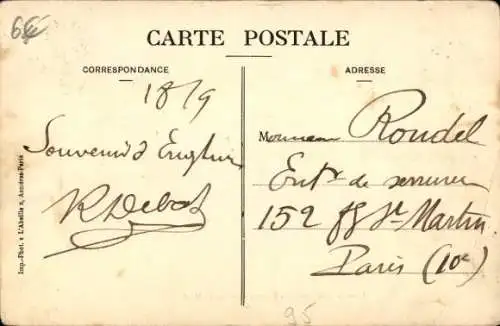 6€
CARTE POSTALE
CORRESPONDANCE
ADRESSE
18/9
Souvenir d'Enghien
R Debat
Monsieur Roudel
Entr de serrurerie
152 fg St Martin
Paris (10e)
Imp.-Phot. « L'Abeille », Asnières-Paris
95